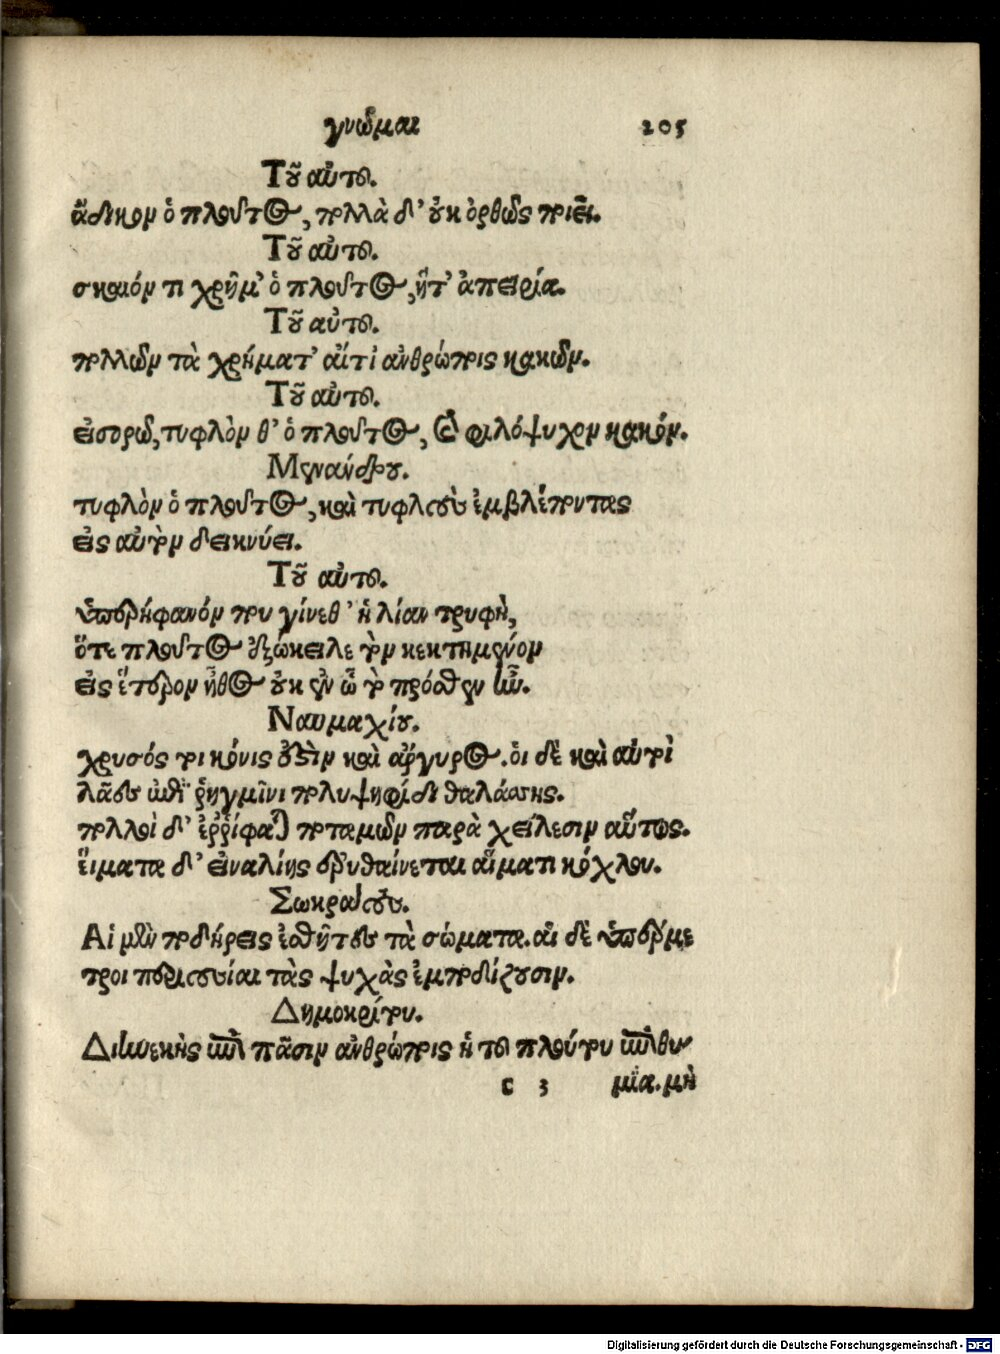 γνῶμαι 205
Τοῦ αὐτοῦ.
ἄδικον ὁ πλοῦτος, πολλὰ δ' οὐκ ὀρθῶς ποιεῖ.
Τοῦ αὐτοῦ.
σκαιόν τι χρῆμ' ὁ πλοῦτος, ἥτ' ἀπειρία.
Τοῦ αὐτοῦ.
πολλῶν τὰ χρήματ' αἴτι' ἀνθρώποις κακῶν.
Τοῦ αὐτοῦ.
εἰσορῶ, τυφλὸν θ' ὁ πλοῦτος, καὶ φιλόψυχον κακόν.
Μενάνδρου.
τυφλὸν ὁ πλοῦτος, καὶ τυφλοὺς ἐμβλέποντας
εἰς αὐτὸν δεικνύει.
Τοῦ αὐτοῦ.
ὑπερήφανόν που γίνεθ' ἡ λίαν τρυφὴ,
ὅτε πλοῦτος ἐξώκειλε τὸν κεκτημένον
εἰς ἕτερον ἦθος οὐκ ἐν ᾧ τὸ πρόσθεν ἦν.
Ναυμαχίου.
χρυσός τοι κόνις ἐστὶν καὶ ἄργυρος. οἱ δὲ καὶ αὐτοὶ
λᾶες ἐπὶ ῥηγμῖνι πολυψηφίδι θαλάσσης.
πολλοὶ δ' ἐῤῥίφαται ποταμῶν παρὰ χείλεσιν αὕτως.
εἵματα δ' εἰναλίης ἐρυθαίνεται αἵματι κόχλου.
Σωκράτους.
Αἱ μὲν ποδήρεις ἐσθῆτες τὰ σώματα. αἱ δὲ ὑπερμε
τροι περιουσίαι τὰς ψυχὰς ἐμποδίζουσιν.
Δημοκρίτου.
Διηνεκὴς ἐπὶ πᾶσιν ἀνθρώποις ἡ τοῦ πλούτου ἐπιθυ
c 3 μία. μὴ
Digitalisierung gefördert durch die Deutsche Forschungsgemeinschaft - DFG